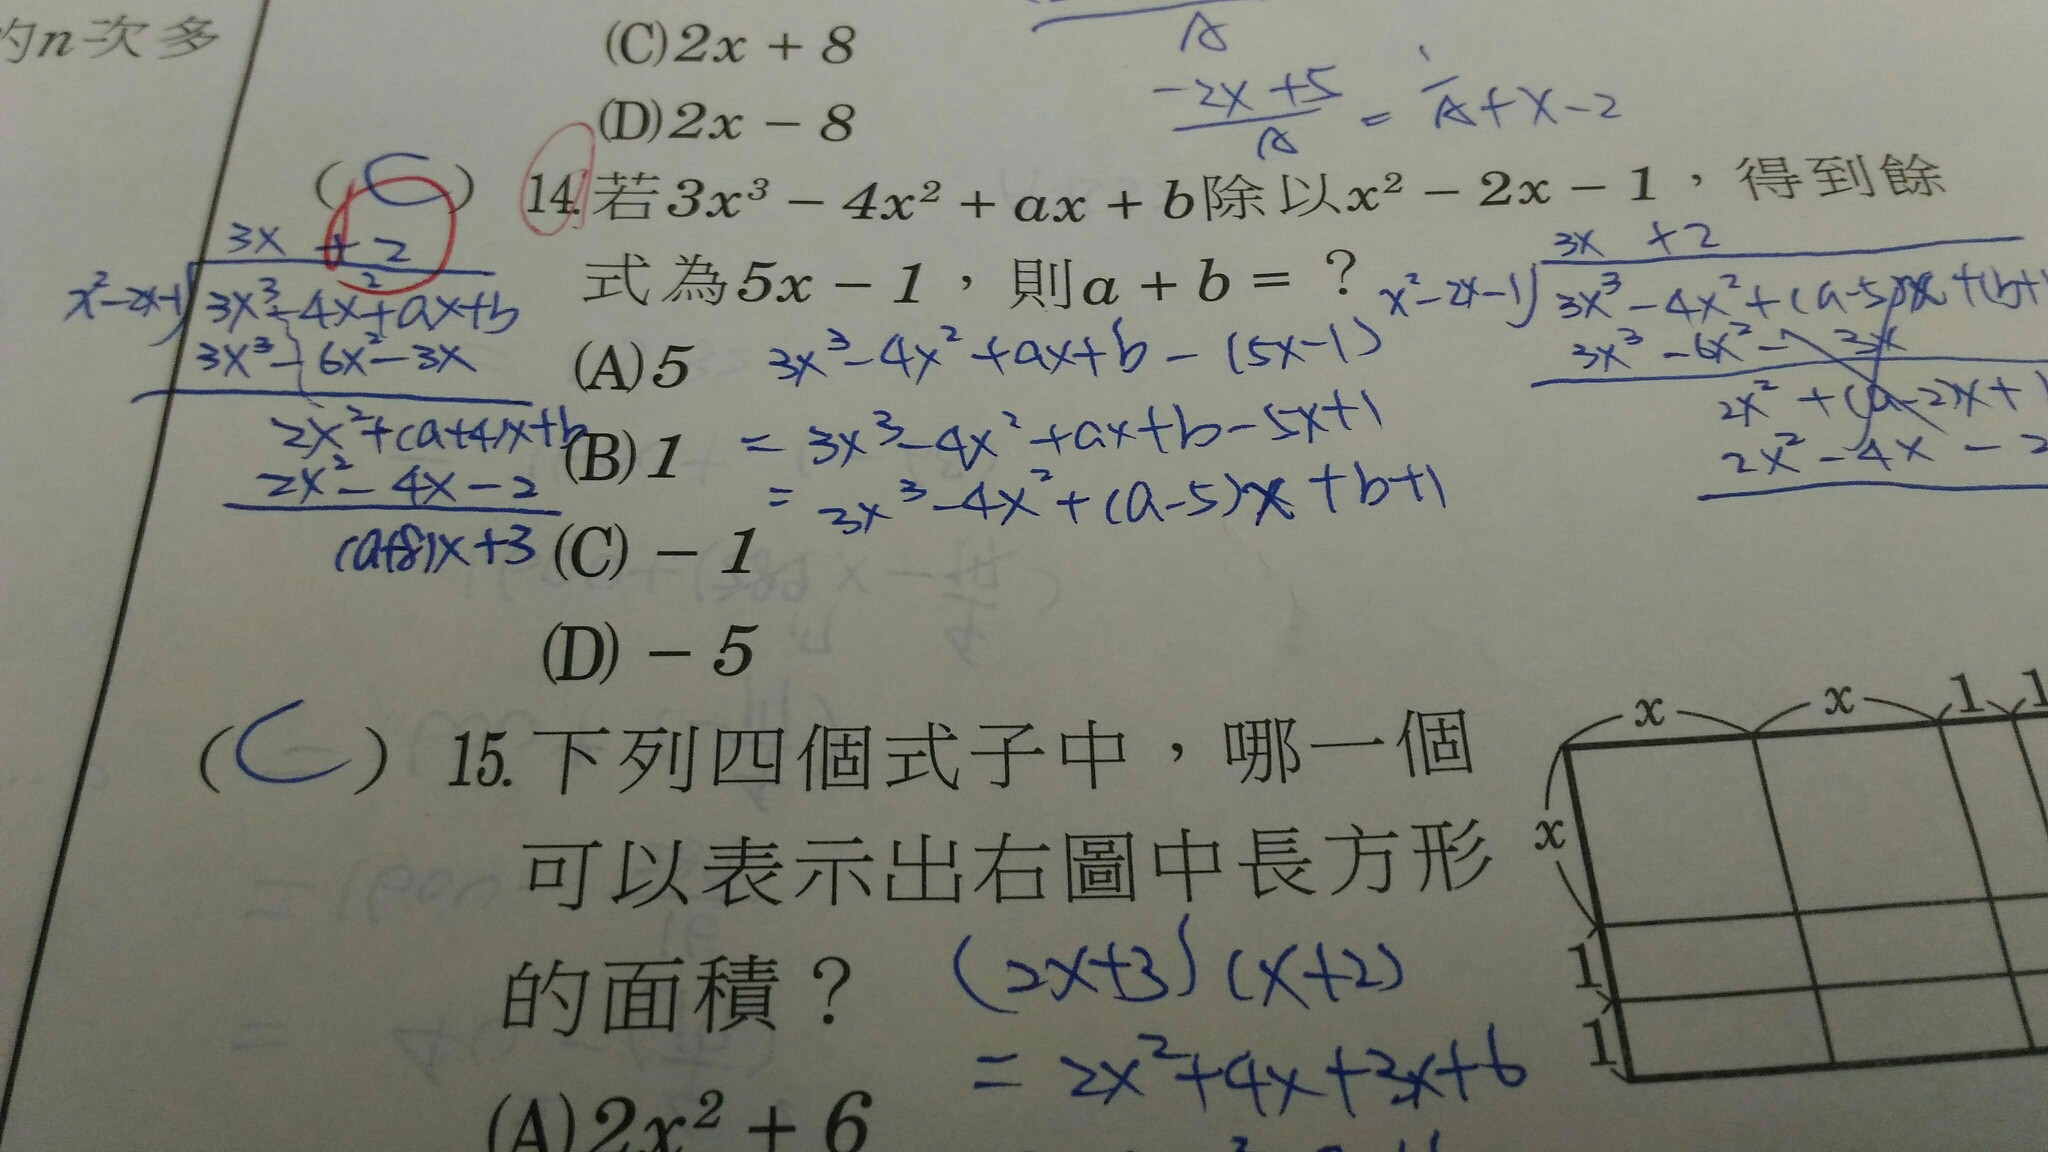 的n次多
(C)2x + 8
(D)2x − 8
A
−2x+5
A
= A+x−2
( C ) 14.若3x³ − 4x² + ax + b除以x² − 2x − 1，得到餘
式為5x − 1，則a + b = ？
3x + 2
x²−2x−1 3x³−4x²+ax+b
3x³−6x²−3x
2x²+(a+4)x+b
2x²−4x−2
(a+8)x+3
(A)5
(B)1
(C) − 1
(D) − 5
3x³−4x²+ax+b−(5x−1)
= 3x³−4x²+ax+b−5x+1
= 3x³−4x²+(a−5)x+b+1
3x +2
x²−2x−1 3x³−4x²+(a−5)x+(b+1
3x³−6x²− 3x
2x²+(a−2)x+1
2x²−4x−2
( C ) 15.下列四個式子中，哪一個
可以表示出右圖中長方形
的面積？
(2x+3)(x+2)
= 2x²+4x+3x+6
(A)2x² + 6
x x 1 1
x
1
1